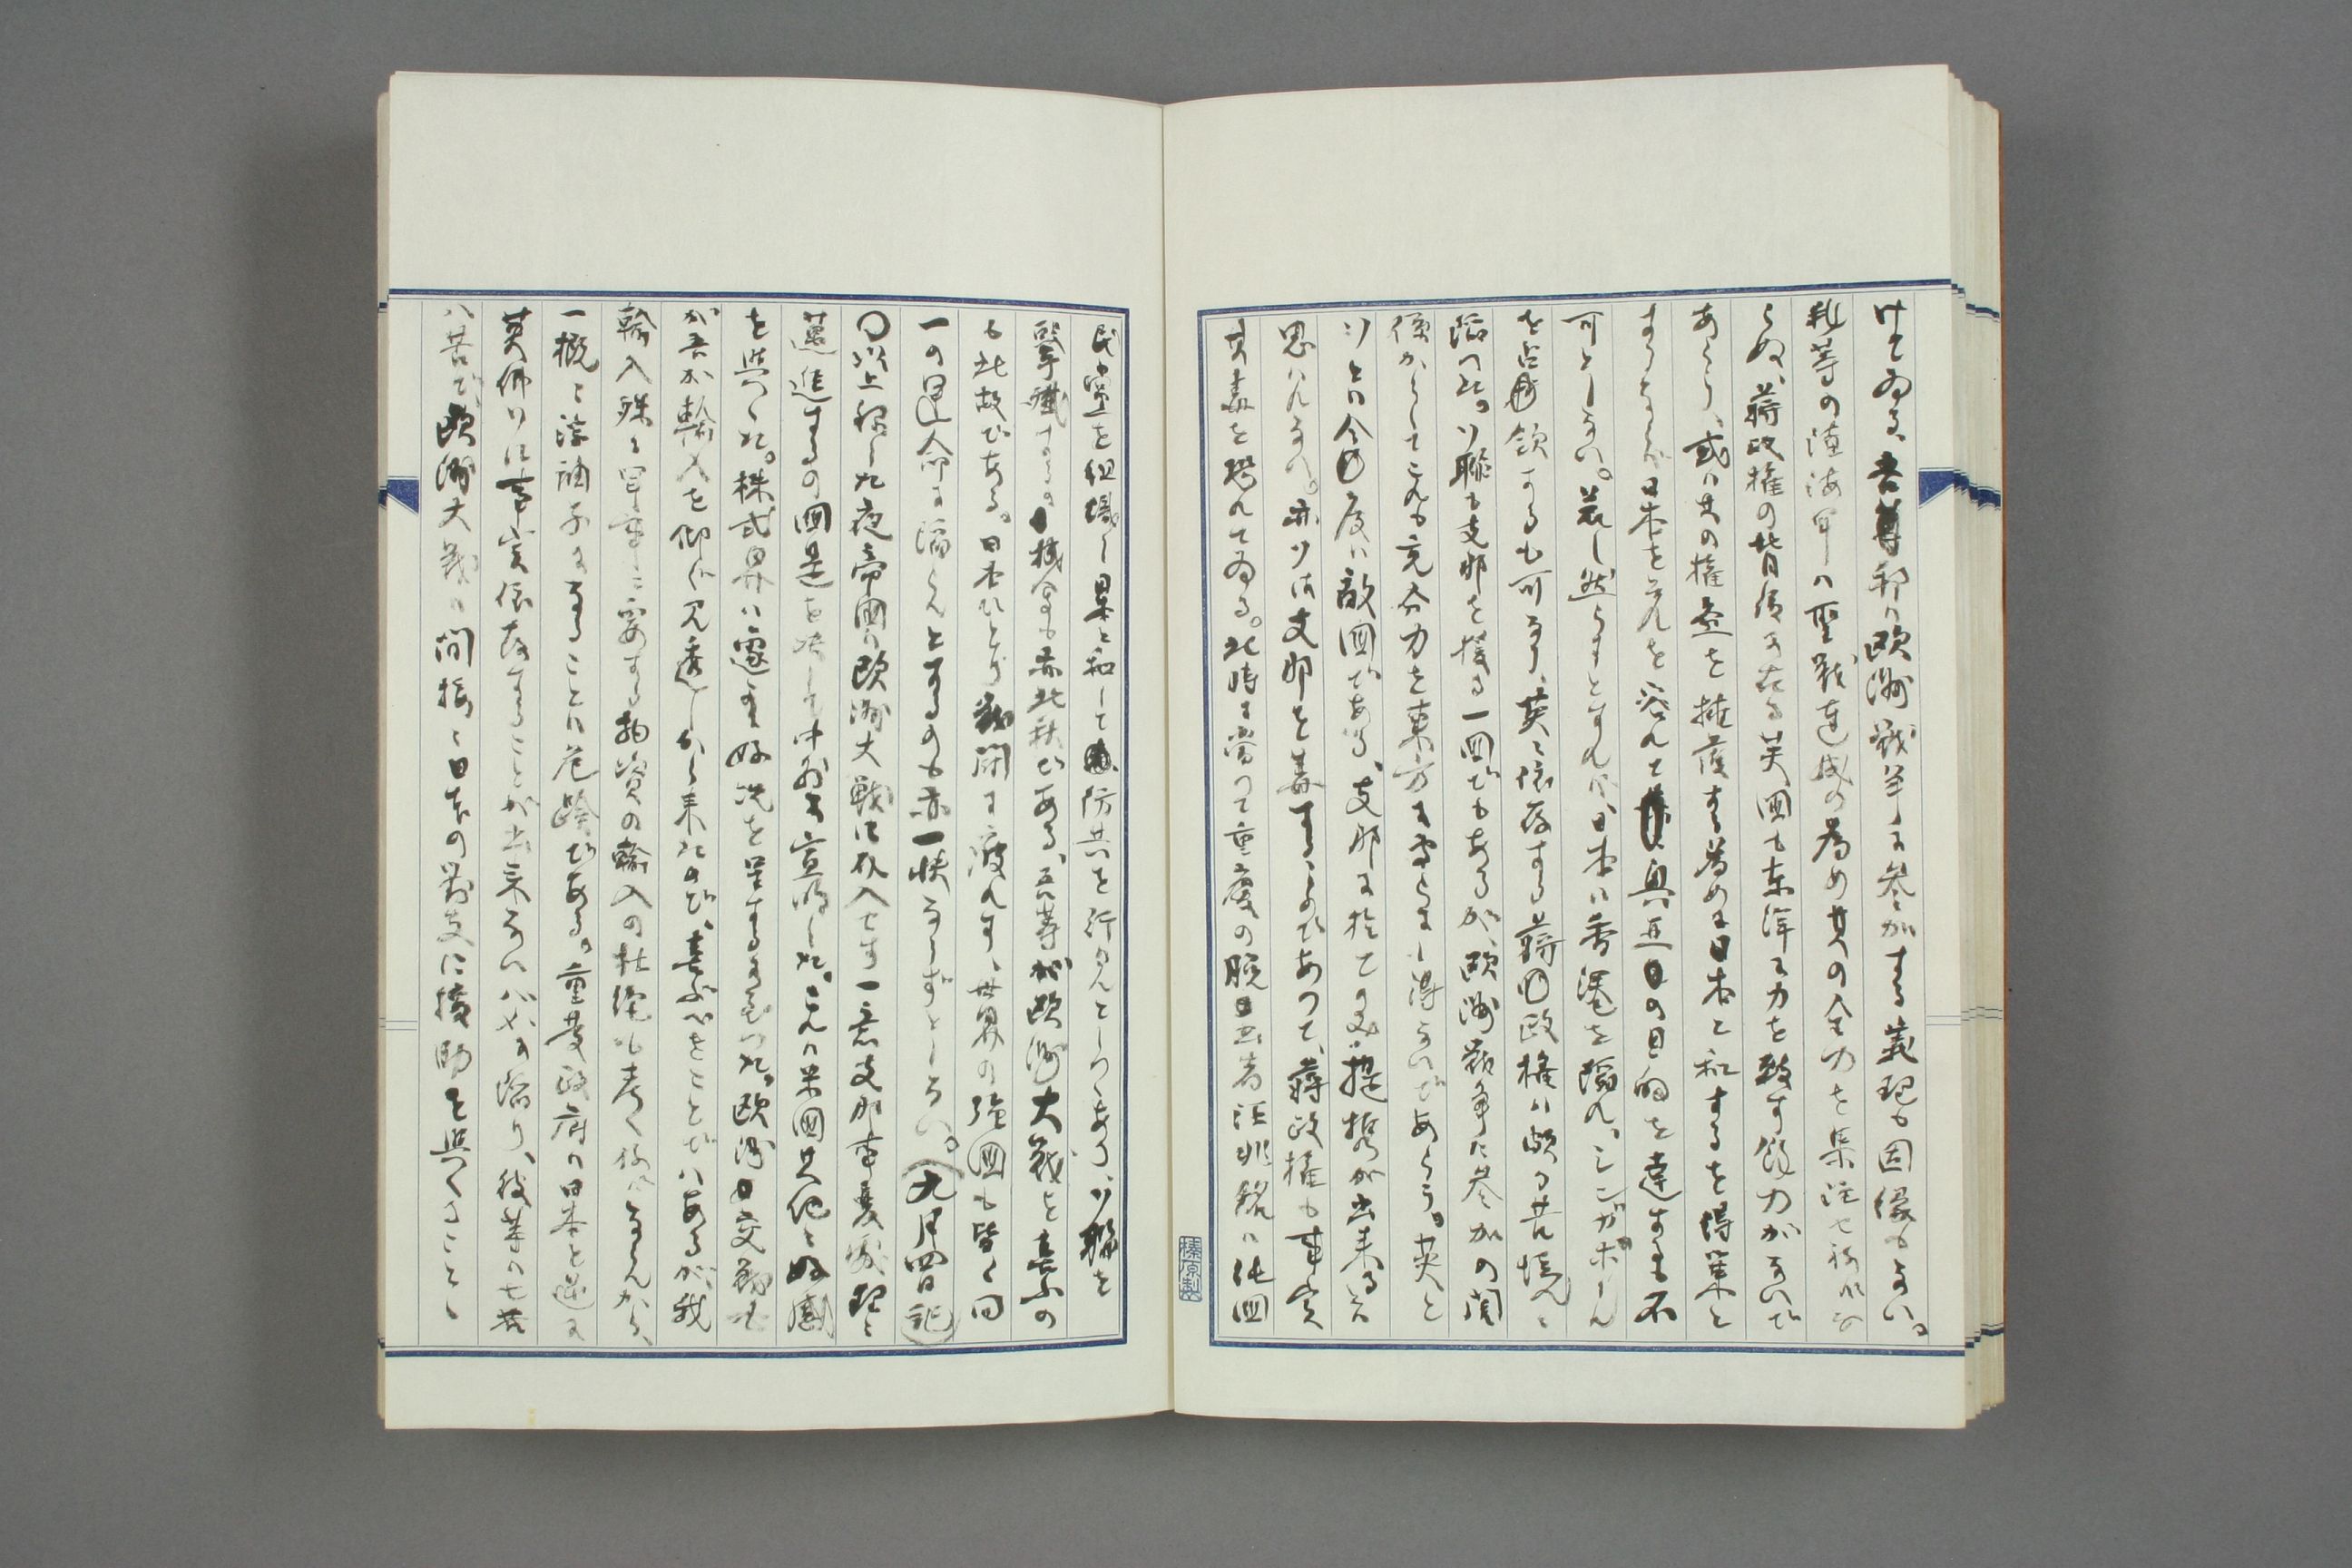 けてゐる、吾等邦は欧洲戦争に参加する義理も因縁もない。
我等の陸海軍は聖戦達成の為め其の全力を集注せねばな
らぬ、蒋政権の背後に在る英国も東洋に力を致す餘力がないで
あらう、或は其の権益を擁護する為めに日本と和するを得策と
するとも日本を之れを容れて興亜の目的を達するも不
可としない。若し然らずとすれば日本は香港を陥れ、シンガポールん
を占領するも可なり、英に依存する蒋政権は頗る苦境に
陥つた。ソ聯も支那を援る一国でもあるが、欧洲戦争に参加の関
係からしてこれも充分力を東方に專らにし得ないであらう。英と
ソとは今度は敵国である、支那に於ての提携が出来るとは
思はれない。赤ソは支那を毒するものであつて、蒋政権も事実
其毒を恐れてゐる。此時に当つて重慶の脱出者汪兆銘は他国
民党を組織し日本と和して防共を行はんとしつつあり、ソ聯を
撃殲するの機会も亦此秋である、吾等が欧洲大戦を喜ぶの
も此故である。日本ひとり戦闘に疲れず、世界の強国も皆な同
一の運命に陥らんとするのも亦一快ならずとしない。(九月四日記)
〇以上記した夜帝国は欧洲大戦に介入せず一意支那事変処理に
邁進するの国是を決して中外に宣明した。之れは米国其他に好感
を与へた。株式界は遽に好況を呈するに至つた。欧洲の交戦も
が吾が輸入を仰ぐ見透しから来たので、喜ぶべきことではあるが、我
輸入殊に軍事に要する物資の輸入の杜絶も考へねばならんから、
一概に浮袖子になることは危険である。重慶政府は日本と逆に
英佛ソに事実依存することが出来ないハメに陥り、彼等の七苦
八苦で、欧洲大戦は間接に日本の対支に援助を与へることゝ
榛原製